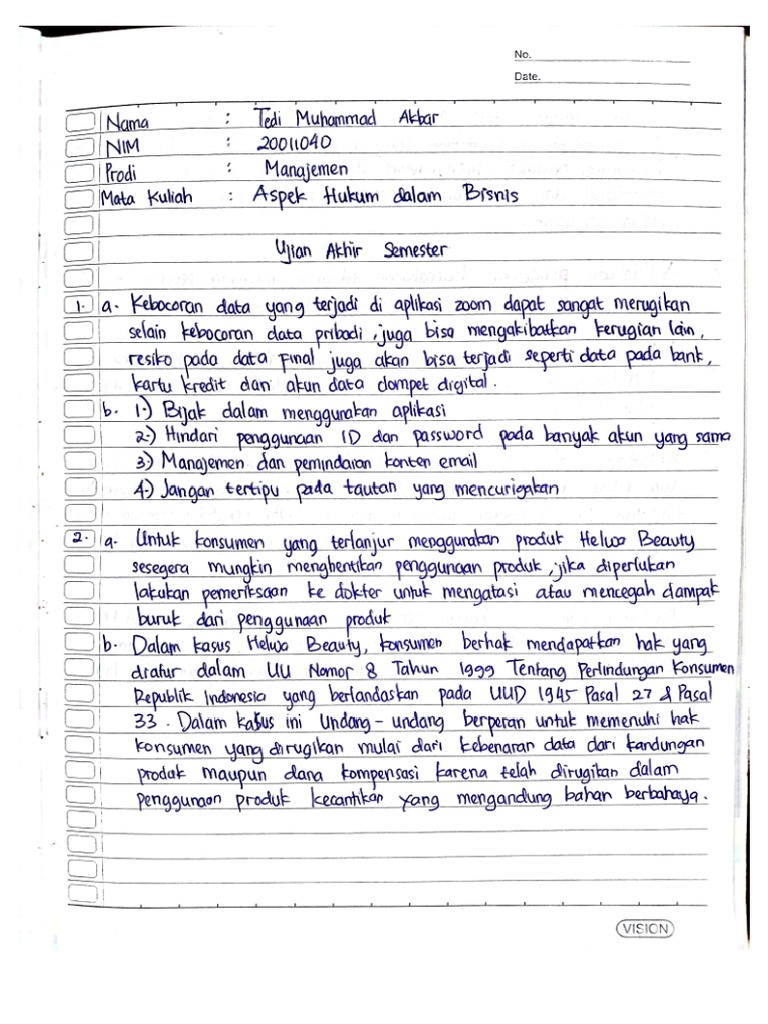 No.
Date.
Nama : Tedi Muhammad Akbar
NIM : 20011040
Prodi : Manajemen
Mata Kuliah : Aspek Hukum dalam Bisnis
Ujian Akhir Semester
1. a. Kebocoran data yang terjadi di aplikasi zoom dapat sangat merugikan
selain kebocoran data pribadi, juga bisa mengakibatkan kerugian lain,
resiko pada data final juga akan bisa terjadi seperti data pada bank,
kartu kredit dan akun data dompet digital.
b. 1.) Bijak dalam menggunakan aplikasi
2.) Hindari penggunaan ID dan password pada banyak akun yang sama
3.) Manajemen dan pemindaian konten email
4.) Jangan tertipu pada tautan yang mencurigakan
2. a. Untuk konsumen yang terlanjur menggunakan produk Helwa Beauty
sesegera mungkin menghentikan penggunaan produk, jika diperlukan
lakukan pemeriksaan ke dokter untuk mengatasi atau mencegah dampak
buruk dari penggunaan produk
b. Dalam kasus Helwa Beauty, konsumen berhak mendapatkan hak yang
diatur dalam UU Nomor 8 Tahun 1999 Tentang Perlindungan Konsumen
Republik Indonesia yang berlandaskan pada UUD 1945 Pasal 27 & Pasal
33. Dalam kasus ini Undang-undang berperan untuk memenuhi hak
konsumen yang dirugikan mulai dari kebenaran data dari kandungan
produk maupun dana kompensasi karena telah dirugikan dalam
penggunaan produk kecantikan yang mengandung bahan berbahaya.
VISION